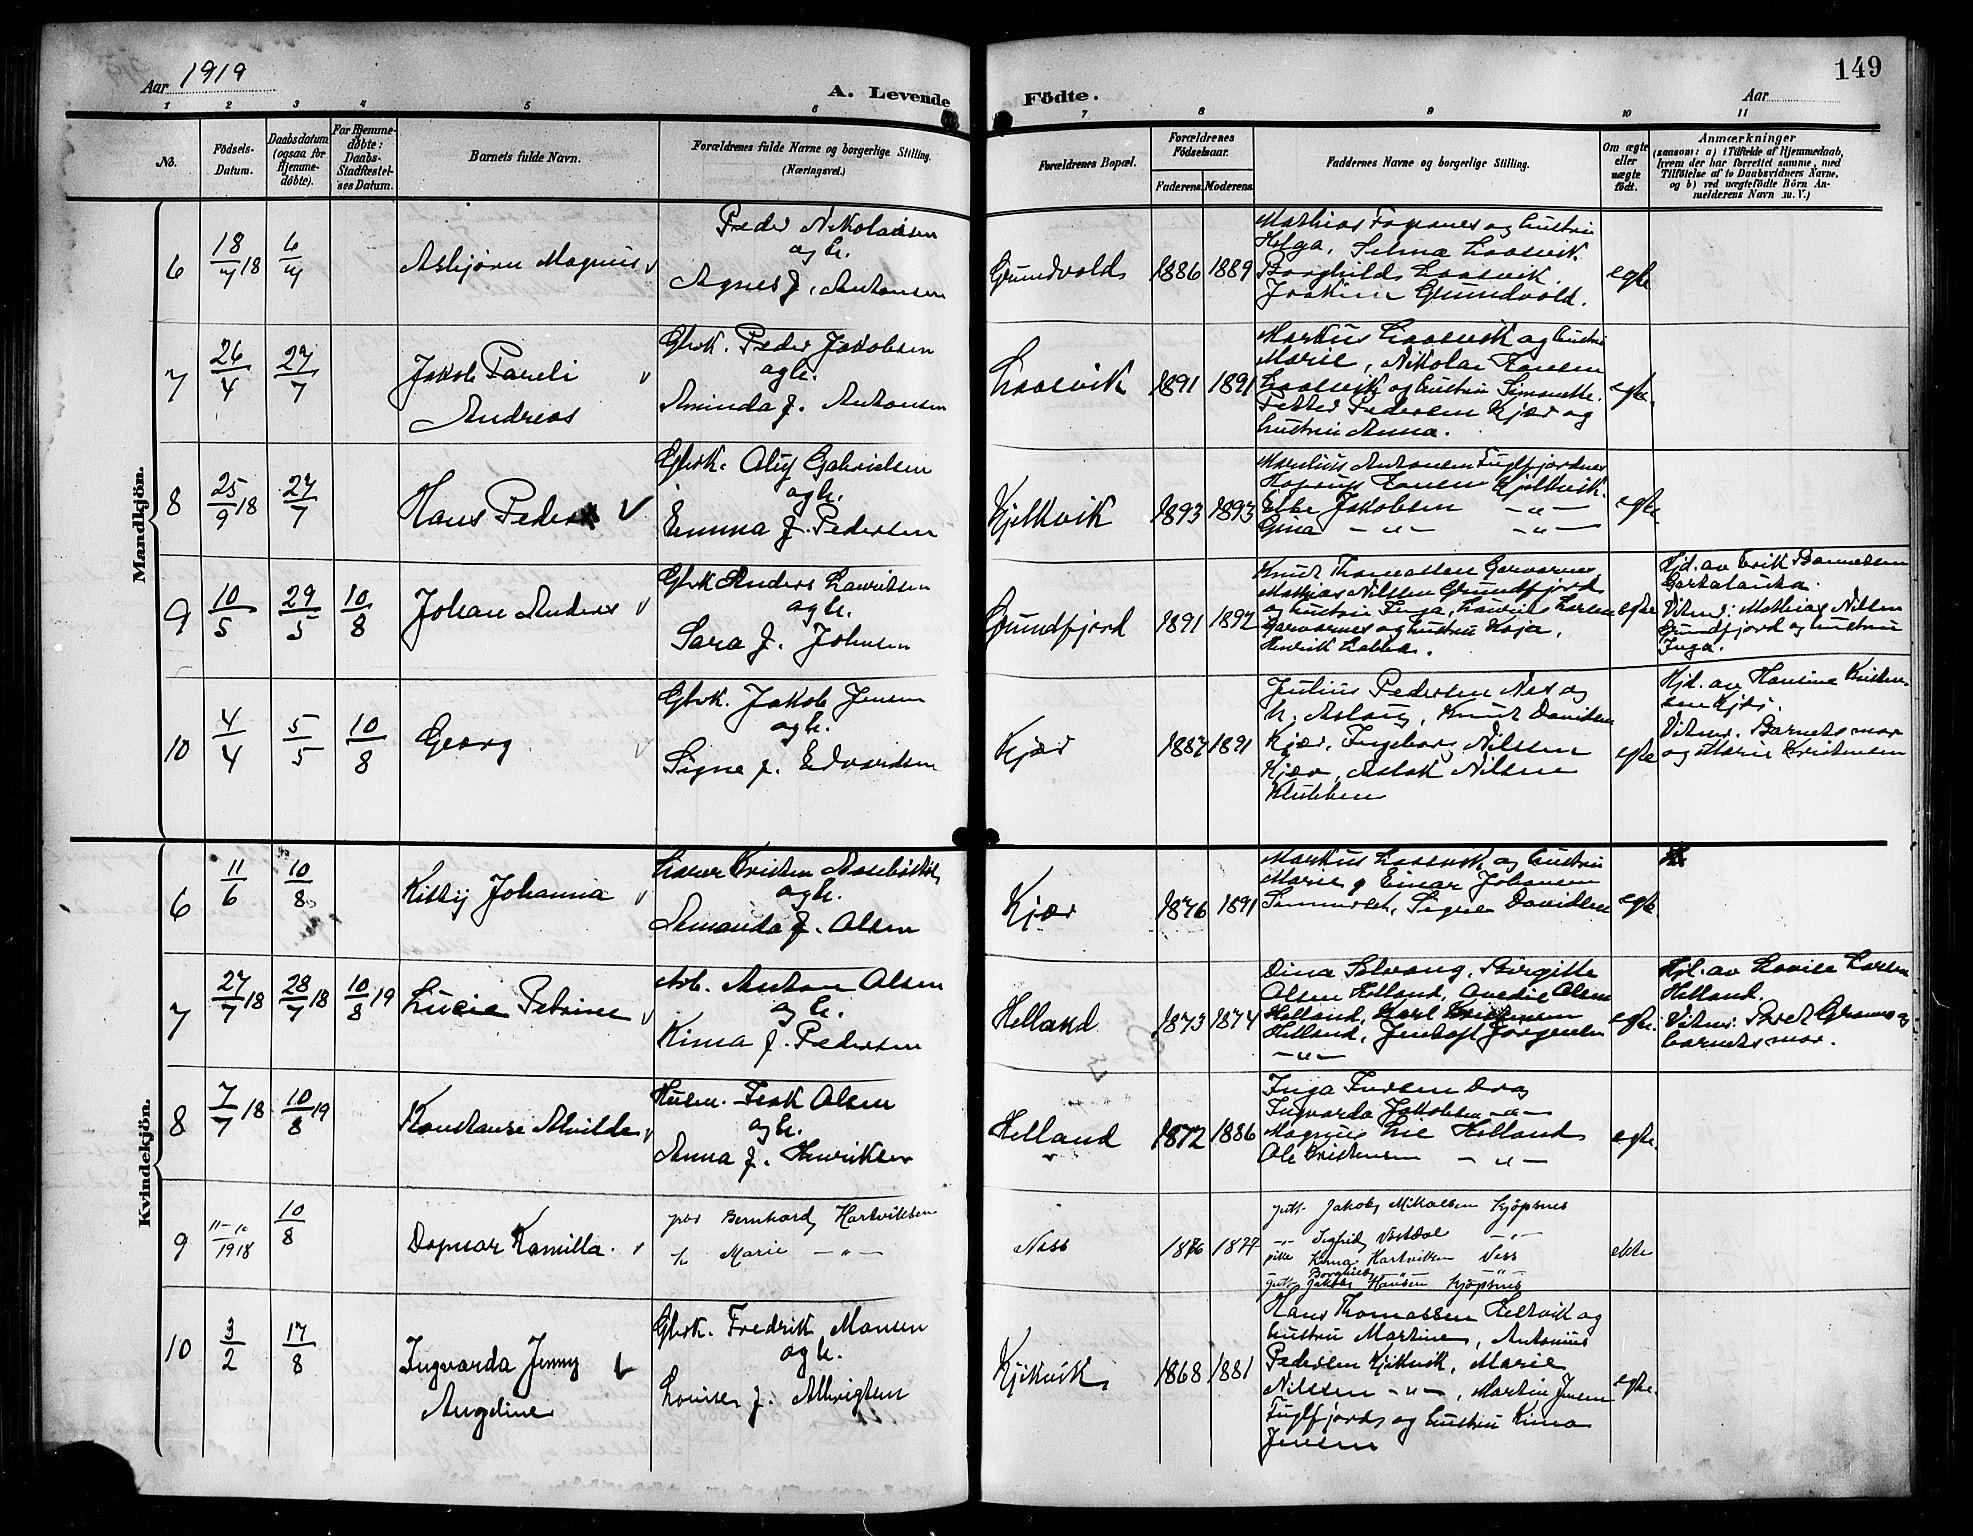 149
Aar 1919
A. Levende Födte.
Aar
1 2 3 4 5 6 7 8 9 10 11
No.
Födsels-Datum.
Daabsdatum (ogsaa for Hjemme-döbte).
For Hjemme-döbte: Daabs-Stadfæstel-ses Datum.
Barnets fulde Navn.
Forældrenes fulde Navne og borgerlige Stilling. (Næringsvei.)
Forældrenes Bopæl.
Forældrenes Födselsaar.
Faderens. Moderens.
Faddernes Navne og borgerlige Stilling.
Om ægte eller uægte födt.
Anmærkninger
(saasom: a) i Tilfælde af Hjemmedaab, hvem der har forrettet samme, med Tilföielse af to Daabsvidners Navne, og b) ved uægtefödte Börn An-melderens Navn m. V.)
Mandkjön.
6
18/7 18
6/4
Asbjørn Magnus
Peder Nikolaisen
og h.
Agnes f. Antonsen
Grundvold
1886 1889
Mathias og hustru
Helga, Selma Laasvik
Borghild Laasvik
Joakim Grundvold.
egte
7
26/4
27/7
Jakob Pareli
Andreas
Gbrk. Peder Jakobsen
og h.
Aminda f. Antonsen
Laasvik
1891 1891
Markus Laasvik og hustru
Marie, Nikolai Hansen
Laasvik og hustru Simonette.
Petter Pedersen Kjær og
hustru Anna.
egte.
8
25/9 18
27/7
Hans Peder
Gbrk. Oluf Gabrielsen
og h.
Emma f. Pedersen
Kjelkvik
1893 1893
Marelius Antonsen Fuglfjordnes
Hansen Kjelkvik.
Jakobsen —〃—
Gina —〃— —〃—
egte.
9
10/5
29/5
10/8
Johan Anders
Gbrk Anders Lauritsen
og h.
Sara f. Johnsen
Grundfjord
1891 1892
Knut Thomassen Gorvarnes
Mathias Nilssen Grundfjord
og hustru Inga, Laurits Larsen
Gorvarnes og hustru Kaja,
Henrik
egte
Hjd. av Erik
Vitner: Mathias Nilsen
Grundfjord og hustru
Inga.
10
4/4
5/5
10/8
Georg
Gbrk. Jakob Jensen
og h.
Signe f. Edvardsen
Kjær
1887 1891
Julius Pedersen Nes og
h. Aslaug, Knut Davidsen
Kjær, Ingeborg Nilssen
Kjær, Aslak Nilsen
Klubben
egte
Hjd. av Hansine Kristen-
sen Kjær.
Vitner: Barnets mor
og Marie Kristensen
Kvindekjön.
6
11/6
10/8
Kitty Johanna
Lærer Kristen
og h.
Amanda f. Olsen
Kjær
1876 1891
Markus Laasvik og hustru
Marie, Einar Johansen
Signe Davidsen
egte
7
27/7 18
28/7 18
10/8 19
Lucie Petrine
Arb. Anton Olsen
og h.
Kima f. Pedersen
Helland
1873 1874
Dina Solvang, Birgitte
Olsen Helland, Olsen
Helland, Karl Kristensen
Helland, Jentoft Jørgensen
—〃—
egte.
Hjd. av Lovise Larsen
Helland.
Vitner: Beret og
barnets mor.
8
7/7 18
10/8 19
Konstanse Alvilde
Husm. Isak Olsen
og h.
Anna f. Henriksen
Helland
1872 1886
Inga Iversen
Ingvarda Jakobsen —〃—
Magnus Lie Helland
Ole Kristensen —〃—
egte.
9
11-10/1918
10/8
Dagmar Kamilla
Bernhard Hartviksen
h. Marie —〃—
Ness
1876 1877
gutt. Jakob Mikalsen Kjöpsnes
—〃— Sigfrid Vestdal —〃—
pike Kima Hartviksen Ness
Borghild —〃— —〃—
gutt. Jakob Hansen Kjöpsnes
ekte
10
3/2
17/8
Ingvarda Jenny
Angeline
Gbrk. Fredrik Monsen
og h.
Lovise f. Albrigtsen
Kjelkvik
1868 1881
Hans Thomassen Kjelkvik og
hustru Martine, Antonius
Pedersen Kjelkvik, Marie
Nilssen —〃—, Martin Jensen
Fuglfjord og hustru Kima
Jensen
egte.